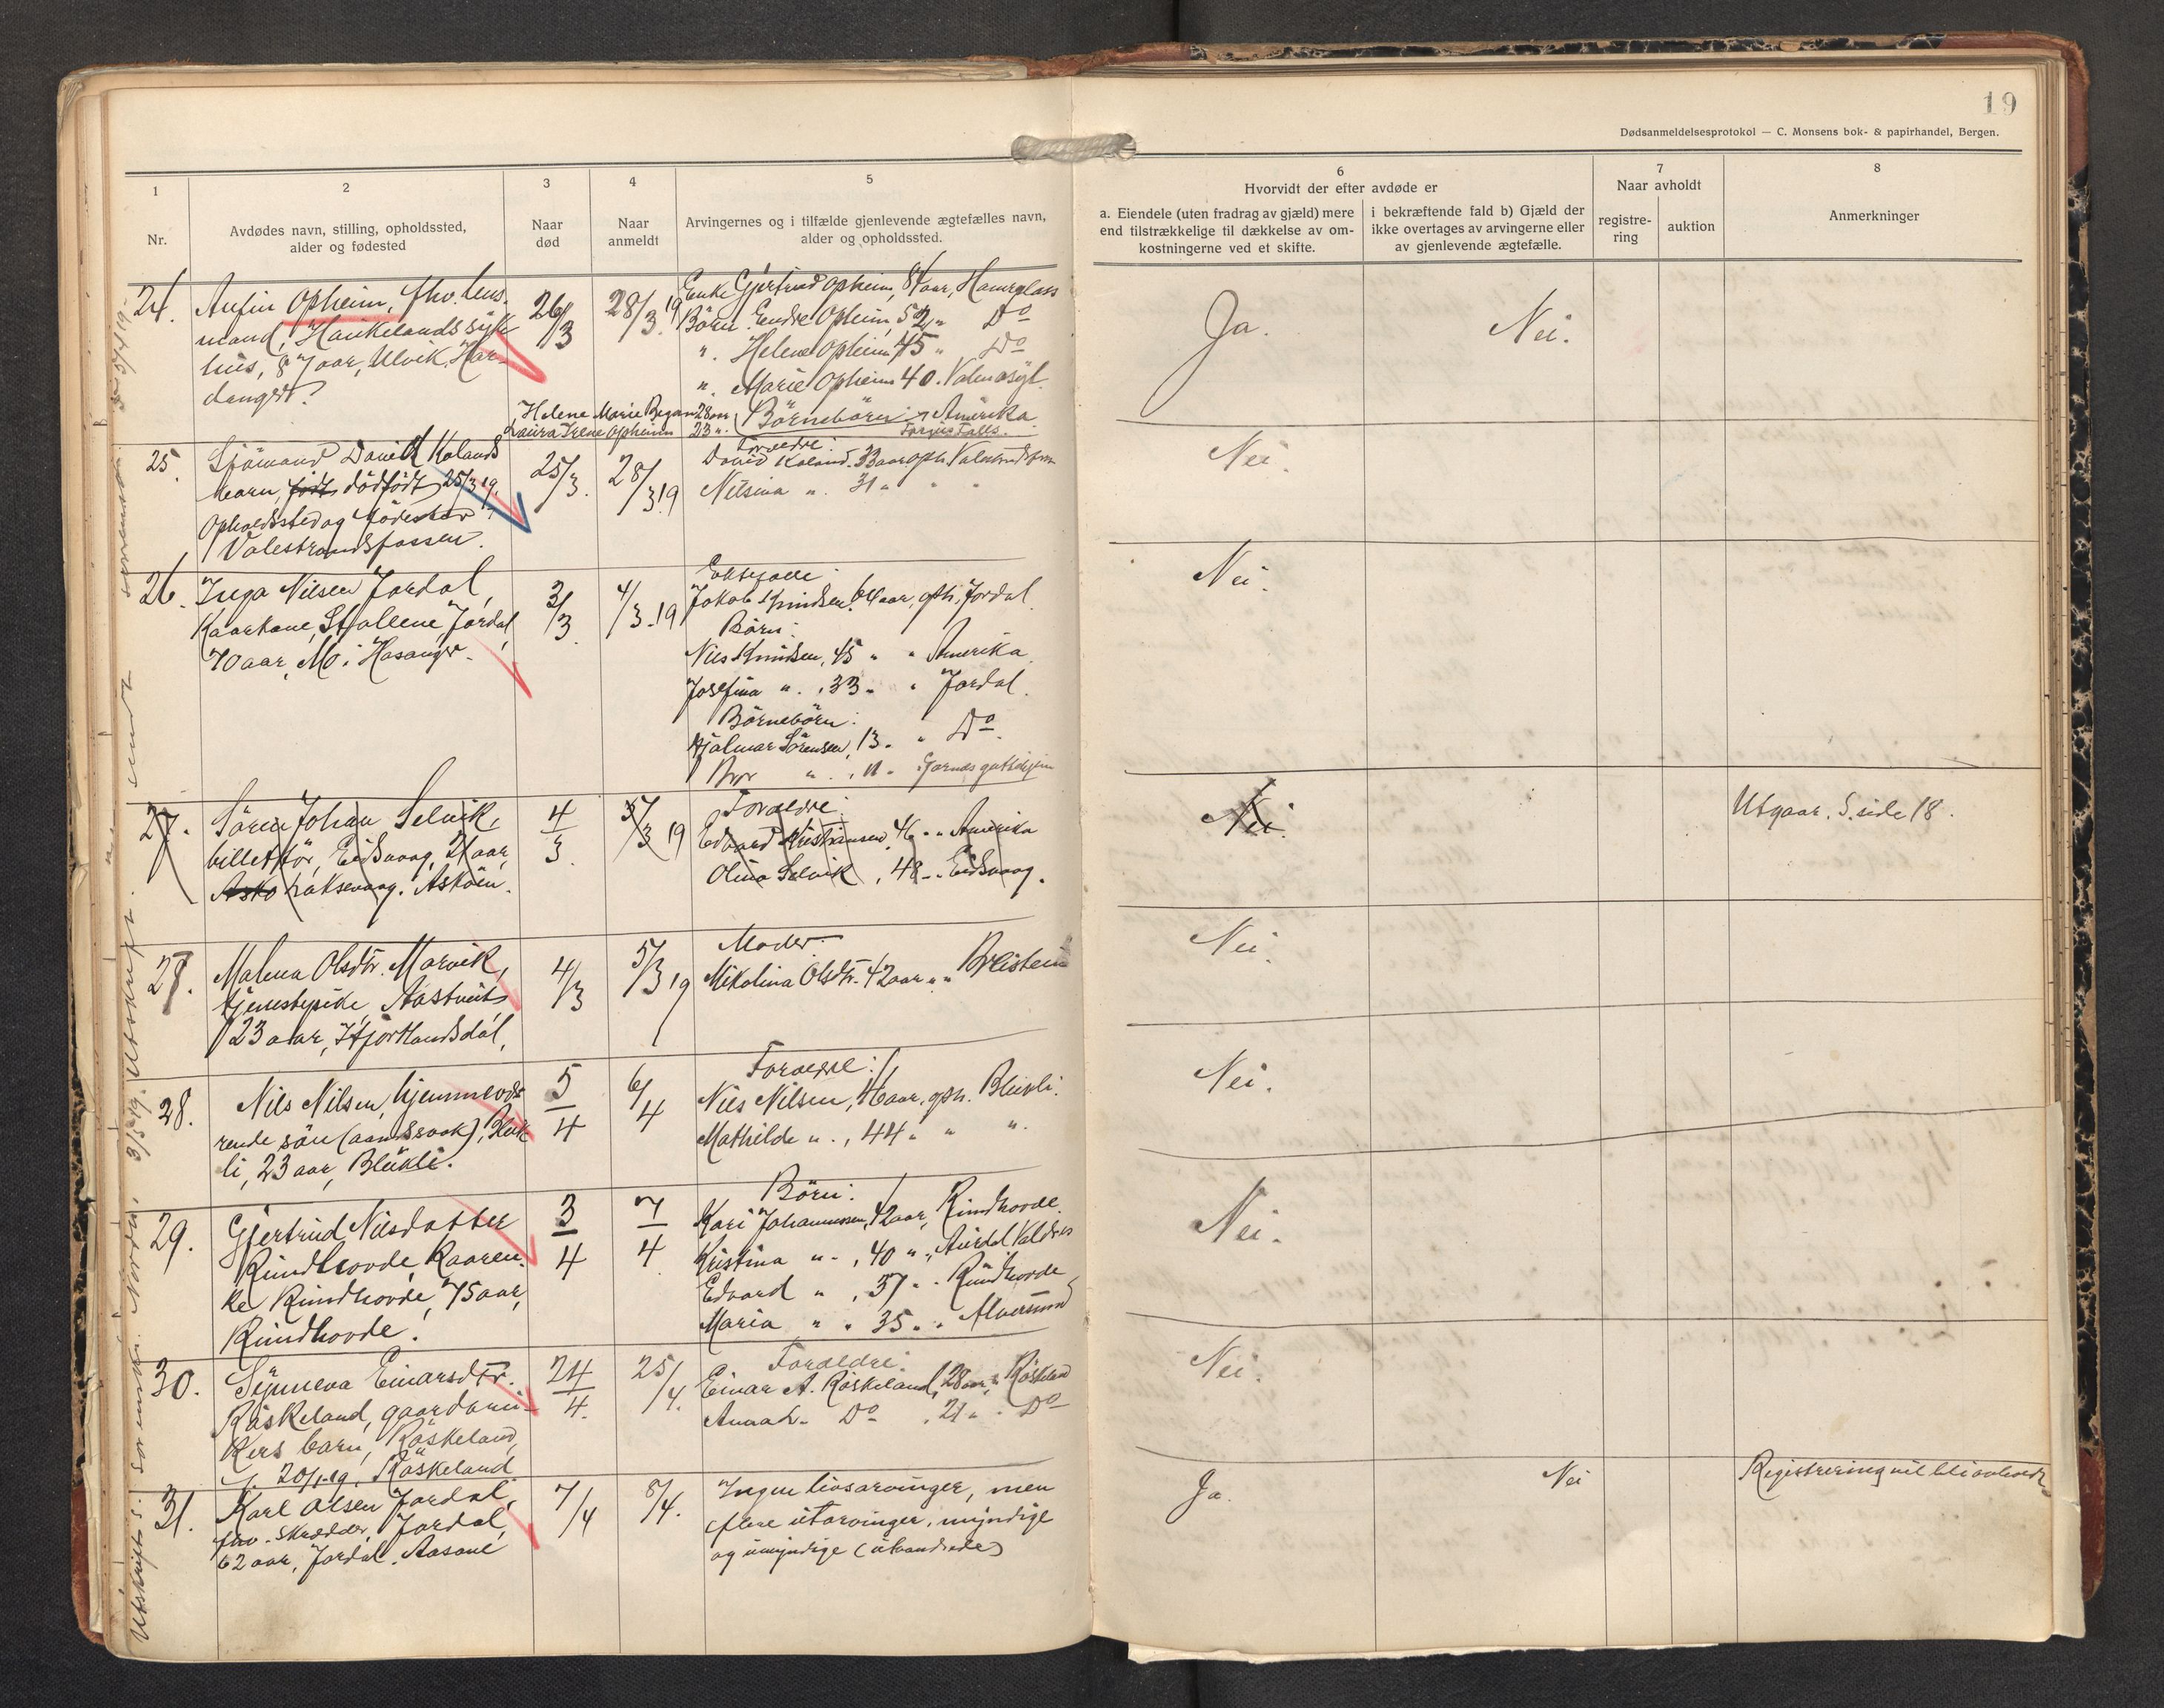 19
Dødsanmeldelsesprotokol — C. Monsens bok- & papirhandel, Bergen.
1
Nr.
2
Avdødes navn, stilling, opholdssted,
alder og fødested
3
Naar
død
4
Naar
anmeldt
5
Arvingernes og i tilfælde gjenlevende ægtefælles navn,
alder og opholdssted.
6
Hvorvidt der efter avdøde er
a. Eiendele (uten fradrag av gjæld) mere
end tilstrækkelige til dækkelse av om-
kostningerne ved et skifte.
i bekræftende fald b) Gjæld der
ikke overtages av arvingerne eller
av gjenlevende ægtefælle.
7
Naar avholdt
registre-
ring
auktion
8
Anmerkninger
24.
Anfin Opheim, fhv. hus-
mand, Haukelands syk-
hus, 87 aar, Ulvik, Har-
anger?
26/3
28/3 19
Enke Gjertrud Opheim, 81 aar,
Börn: Endre Opheim, 52 " Do
" Helene Opheim 45 " Do
" Marie Opheim 40.
Helene Marie 28 aar
Laura Irene Opheim 23 "
Börnebörn Amerika
Fergus Falls.
Ja.
Nei.
25.
Sjömand David Kolands
barn, födt dödfödt 25/3 19.
Opholdssted og födested
Valestrandsfossen.
25/3.
28/3 19
Foraeldre:
David Koland. 33 aar oph.
Nilsina ". 31 " " "
Nei.
26.
Inga Nilsen Jordal,
Kaarkone, Stallene, Jordal,
70 aar, Mo i Hosanger.
3/3
4/3-19
Ektefælle:
Jakob Knudsen, 64 aar, oph. Jordal.
Börn:
Nils Knudsen, 45 " " Amerika.
Josefina ". , 33 " " Jordal.
Börnebörn:
Hjalmar Sörensen, 13 " " Do.
" , 11 "
Nei.
27.
Sören Johan Selvik,
billettör, Eidsvaag, 21 aar,
Asko Askøen.
4/3.
5/3 19
Foraeldre:
Edvard Kristiansen, 46 " " Amerika
Olina Selvik , 48 " " Eidsvaag.
Nei.
Utgaar. S. side 18.
27.
Malena Olsdtr. Marvik,
tjenestepike, Aastveit
23 aar, Hjortlandsdal,
4/3
5/3 19
Moder:
Mikolina Olsdtr. 42 aar " " Breistein
Nei.
28.
Nils Nilsen, hjemmevæ-
rende sön (aandssvak), Blek-
li, 23 aar, Blekli.
5/4
6/4
Foraeldre:
Nils Nilsen, 46 aar, oph. Blekli.
Mathilde ". , 44 " " ".
Nei.
29.
Gjertrud Nilsdatter
Rundhovde, Kaaren-
ke Rundhovde, 75 aar,
Rundhovde.
3/4
7/4
Börn:
Kari Johannessen, 42 aar, Rundhovde.
Kristina " - , 40 " ", Aurdal Valdres
Edvard " , 37 " " Rundhovde
Maria " " 35 " " Alversund
Nei.
30.
Synneva Einarsdtr.
Röskeland, gaardbru-
kers barn, Röskeland,
f. 20/1-19, Röskeland
24/4.
25/4.
Foraeldre:
Einar A. Röskeland, 28 aar, " Röskeland
Anna " Do , 21 " " Do
Nei.
31.
Karl Olsen Jordal,
fhv. skrædder, Jordal,
62 aar, Jordal, Aasane
7/4
8/4.
Ingen livsarvinger, men
flere utarvinger, myndige
og umyndige (utvandrede)
Ja.
Nei
Registrering vil bli avholdt